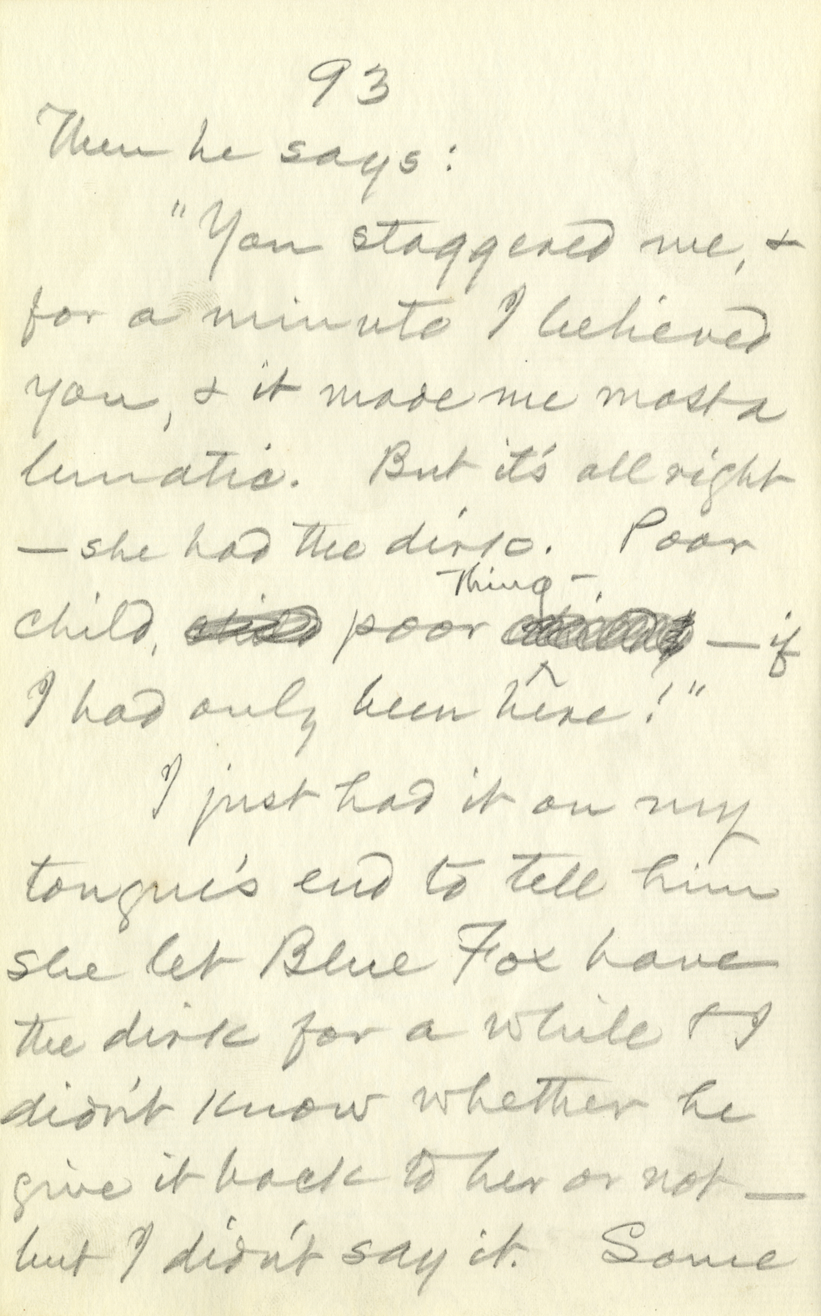 93
Then he says:
"You staggered me, &
for a minute I believed
you, & it made me most a
lunatic. But it's all right
— she had the dirk. Poor
thing
child, poor — if
I had only been here!"
I just had it on my
tongue's end to tell him
she let Blue Fox have
the dirk for a while & I
didn't know whether he
give it back to her or not —
but I didn't say it. Some